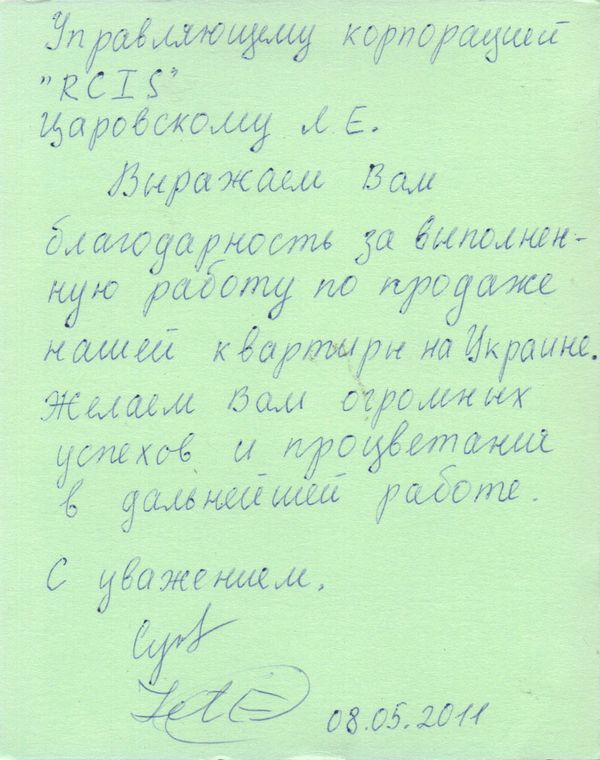 Управляющему корпорацией
"RCIS"
Царовскому Л.Е.
Выражаем Вам
благодарность за выполнен-
ную работу по продаже
нашей квартиры на Украине.
Желаем Вам огромных
успехов и процветания
в дальнейшей работе.
С уважением.
08.05.2011